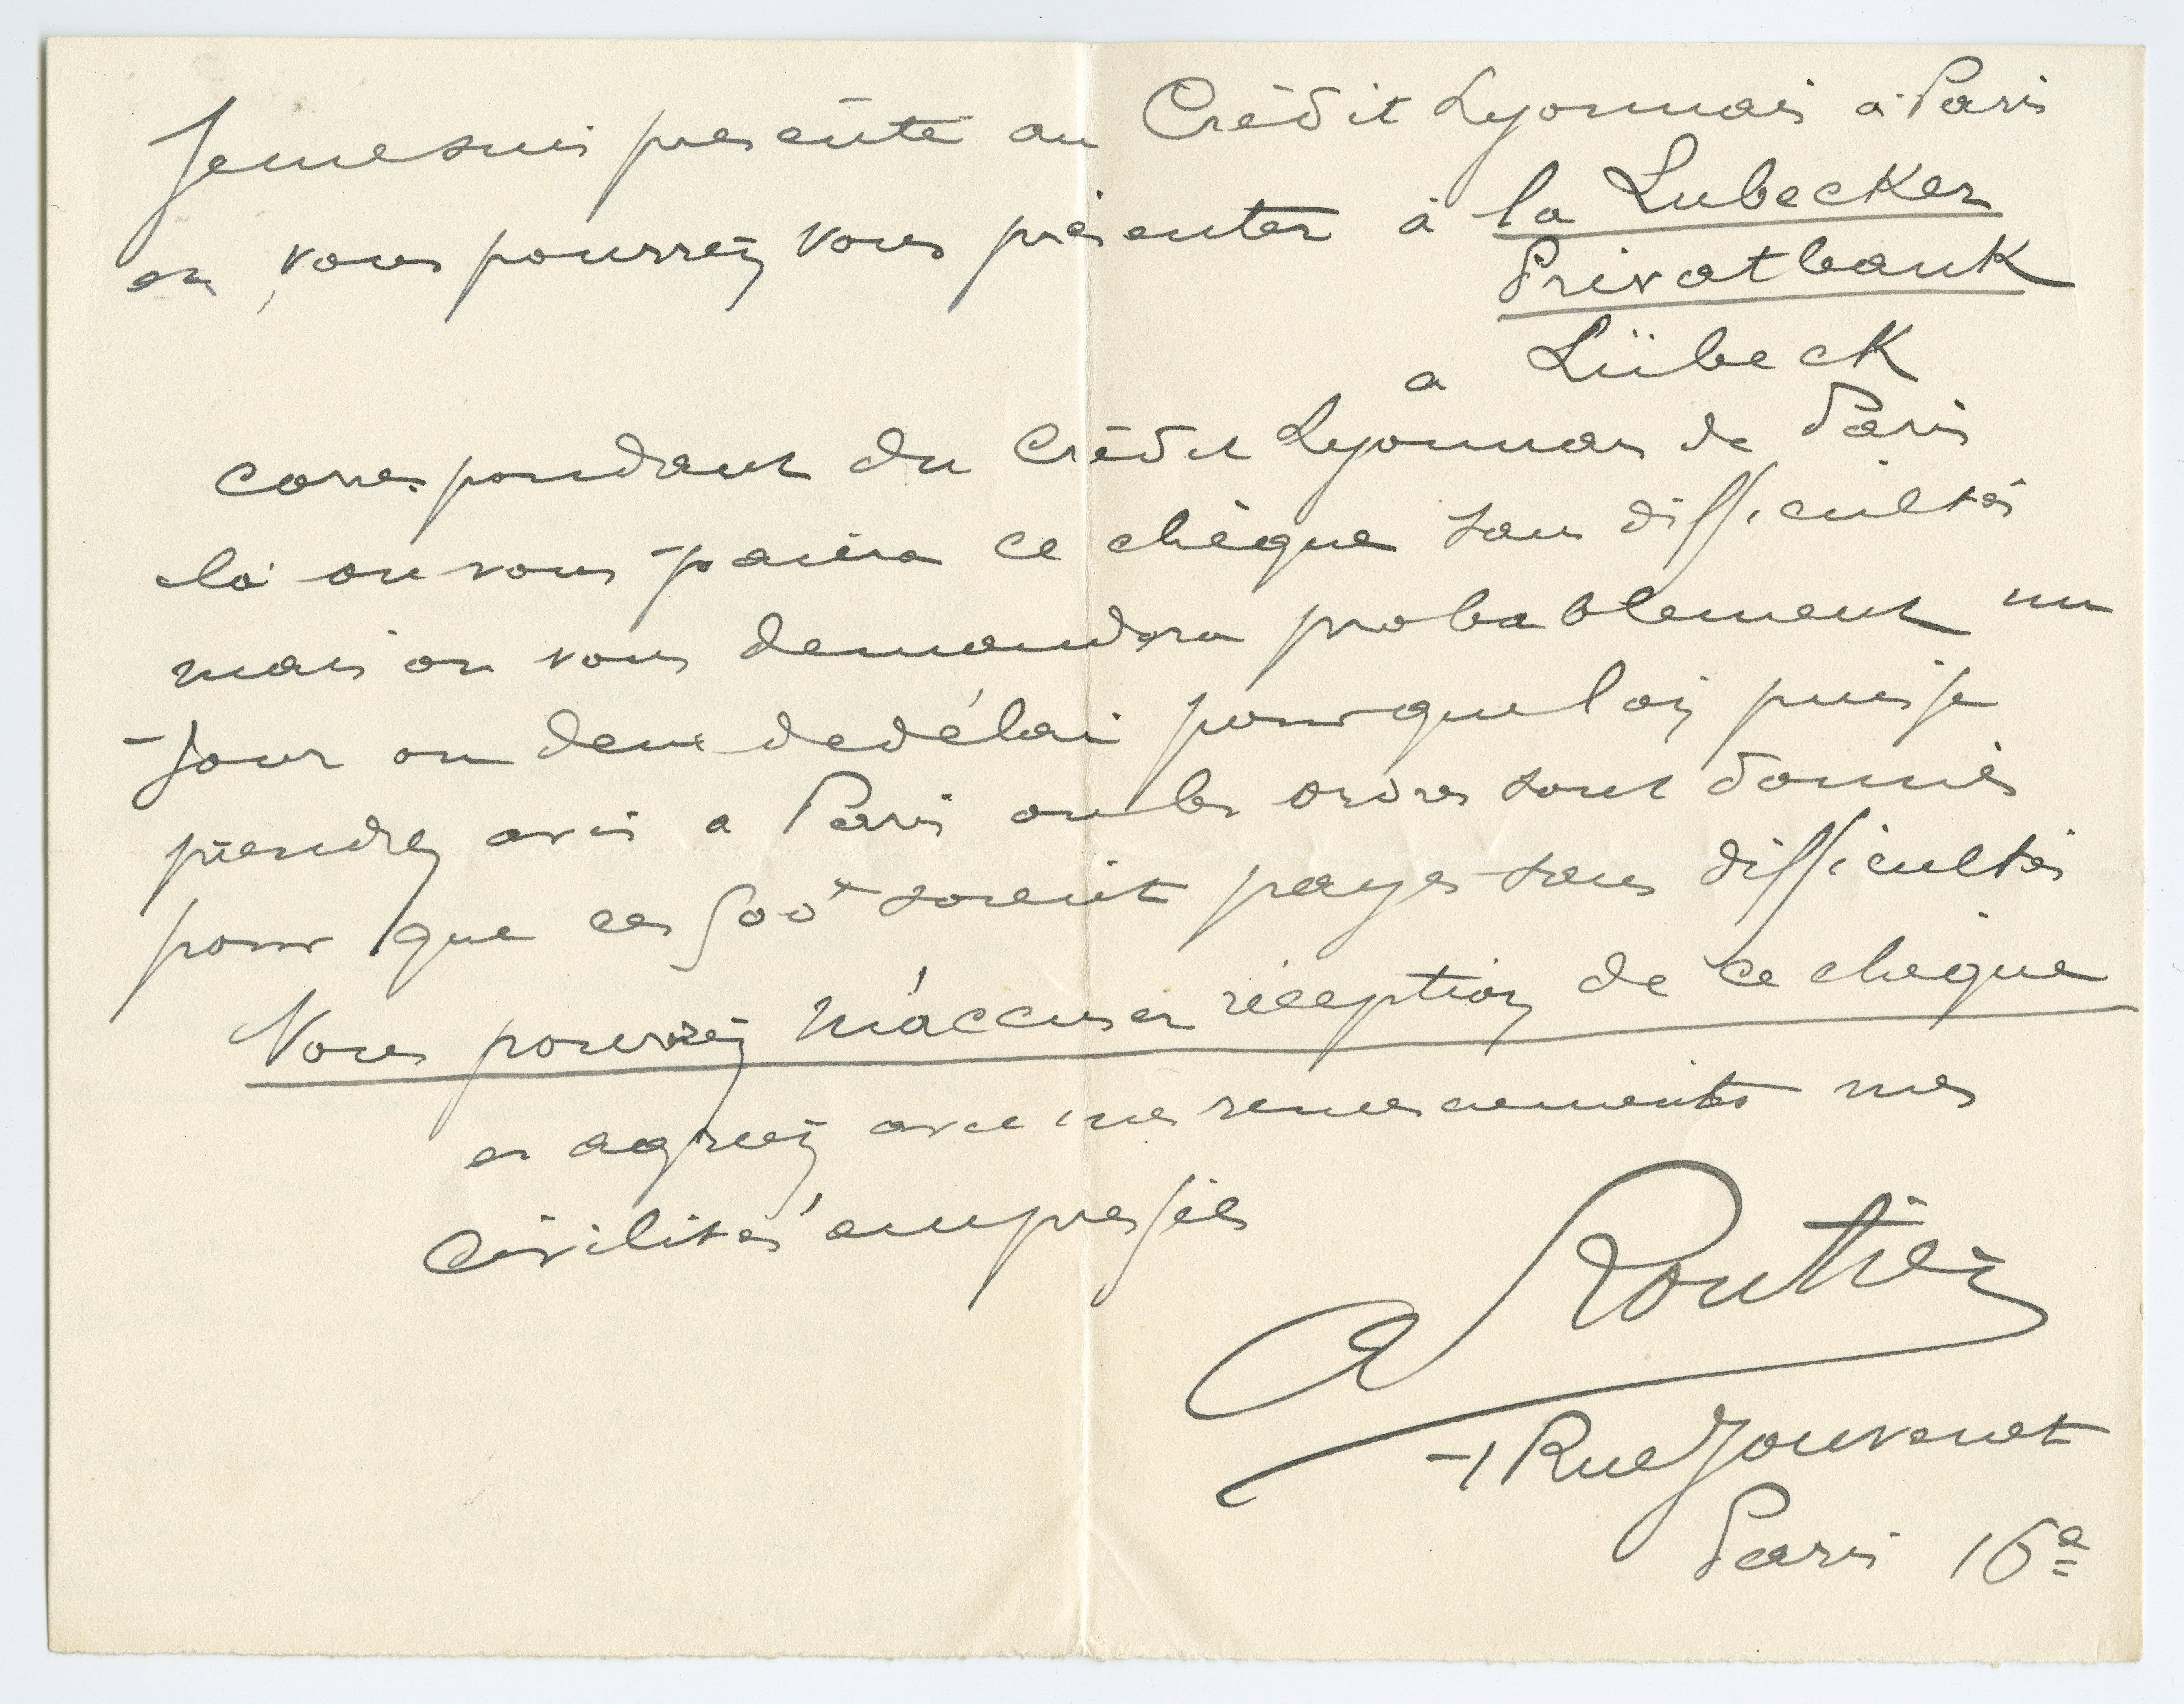 Je me suis présenté au Crédit Lyonnais à Paris
et vous pourrez vous présenter à la Lubecker
Privatbank
a Lübeck
correspondant du Crédit Lyonnais de Paris
là on vous paiera ce chèque sans difficultés
mais on vous demandera probablement un
jour ou deux de délai pour que l'on puisse
prendre avis a Paris ou les ordres sont donnés
pour que ces 500f soient payés sans difficultés
Vous pourrez m'accuser réception de ce chèque
et agréez avec mes remerciements mes
civilités empressées
A Routier
1 Rue Jouvenet
Paris 16e